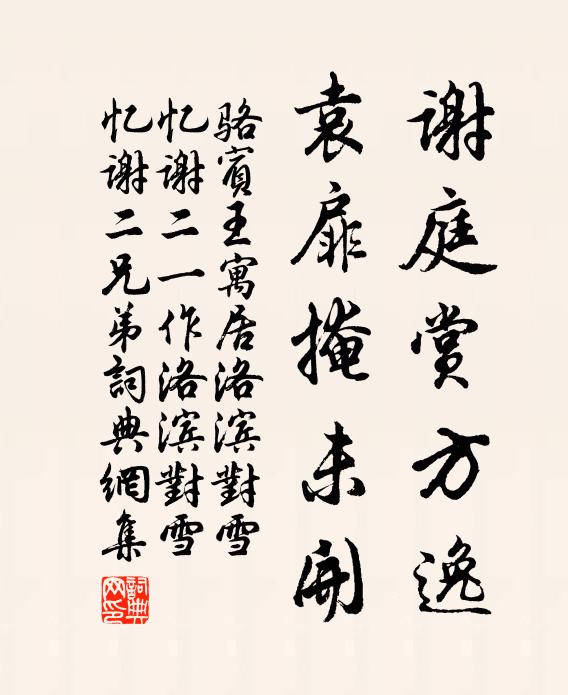 谢庭赏方逸
袁扉掩未開
骆賓王寓居洛滨對雪
忆谢二一作洛滨對雪
忆谢二兄弟詞典網集
詞典
网印